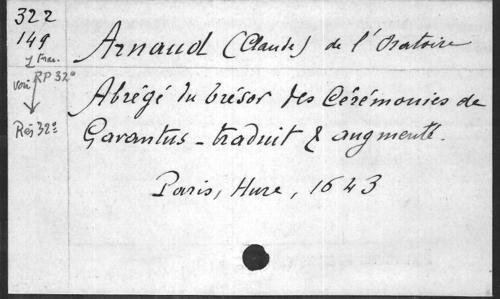 322
149
1 Mar.
voir RP 32°
Rés 32°
Arnaud (Claude) de l'Oratoire
Abrégé du trésor des Cérémonies de
Gavantus - traduit & augmenté.
Paris, Hure, 1643